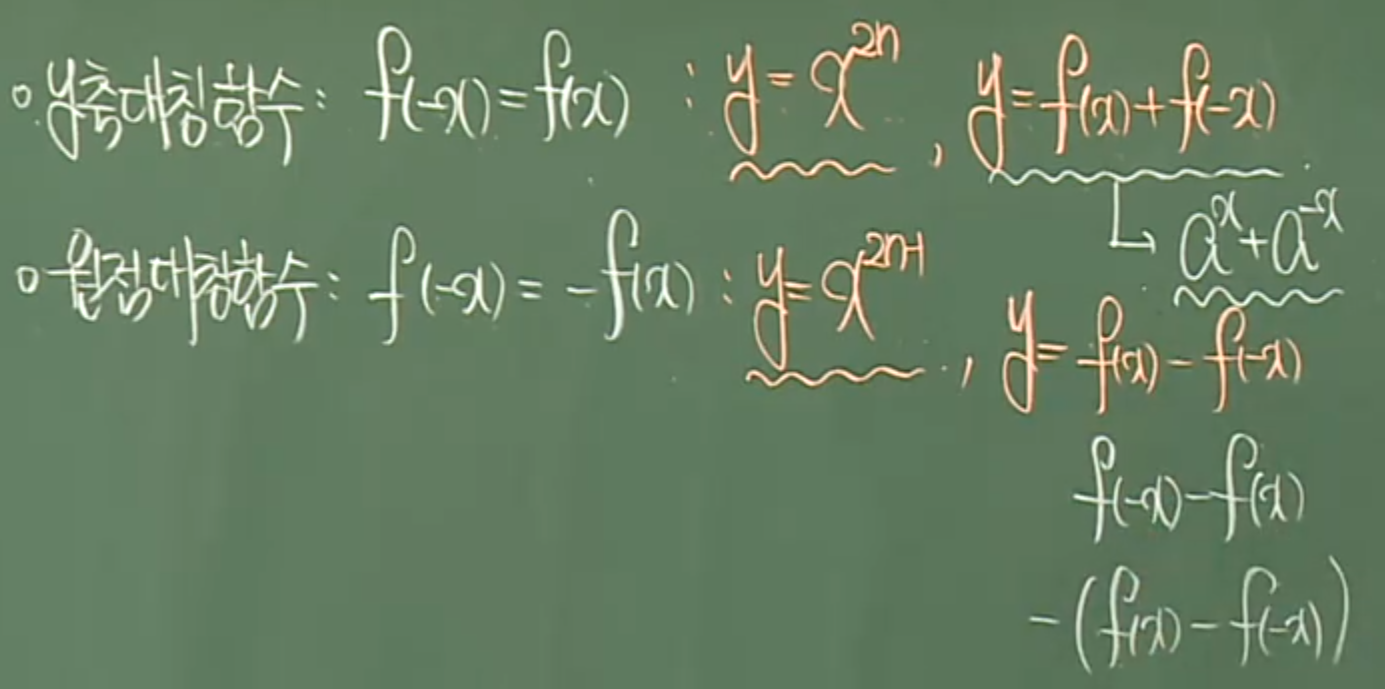 ◦ y축대칭함수 : f(-x) = f(x) : y = x²ⁿ , y = f(x) + f(-x)
↳ aˣ + a⁻ˣ
◦ 원점대칭함수 : f(-x) = -f(x) : y = x²ⁿ⁻¹ , y = f(x) - f(-x)
f(-x) - f(x)
-(f(x) - f(-x))